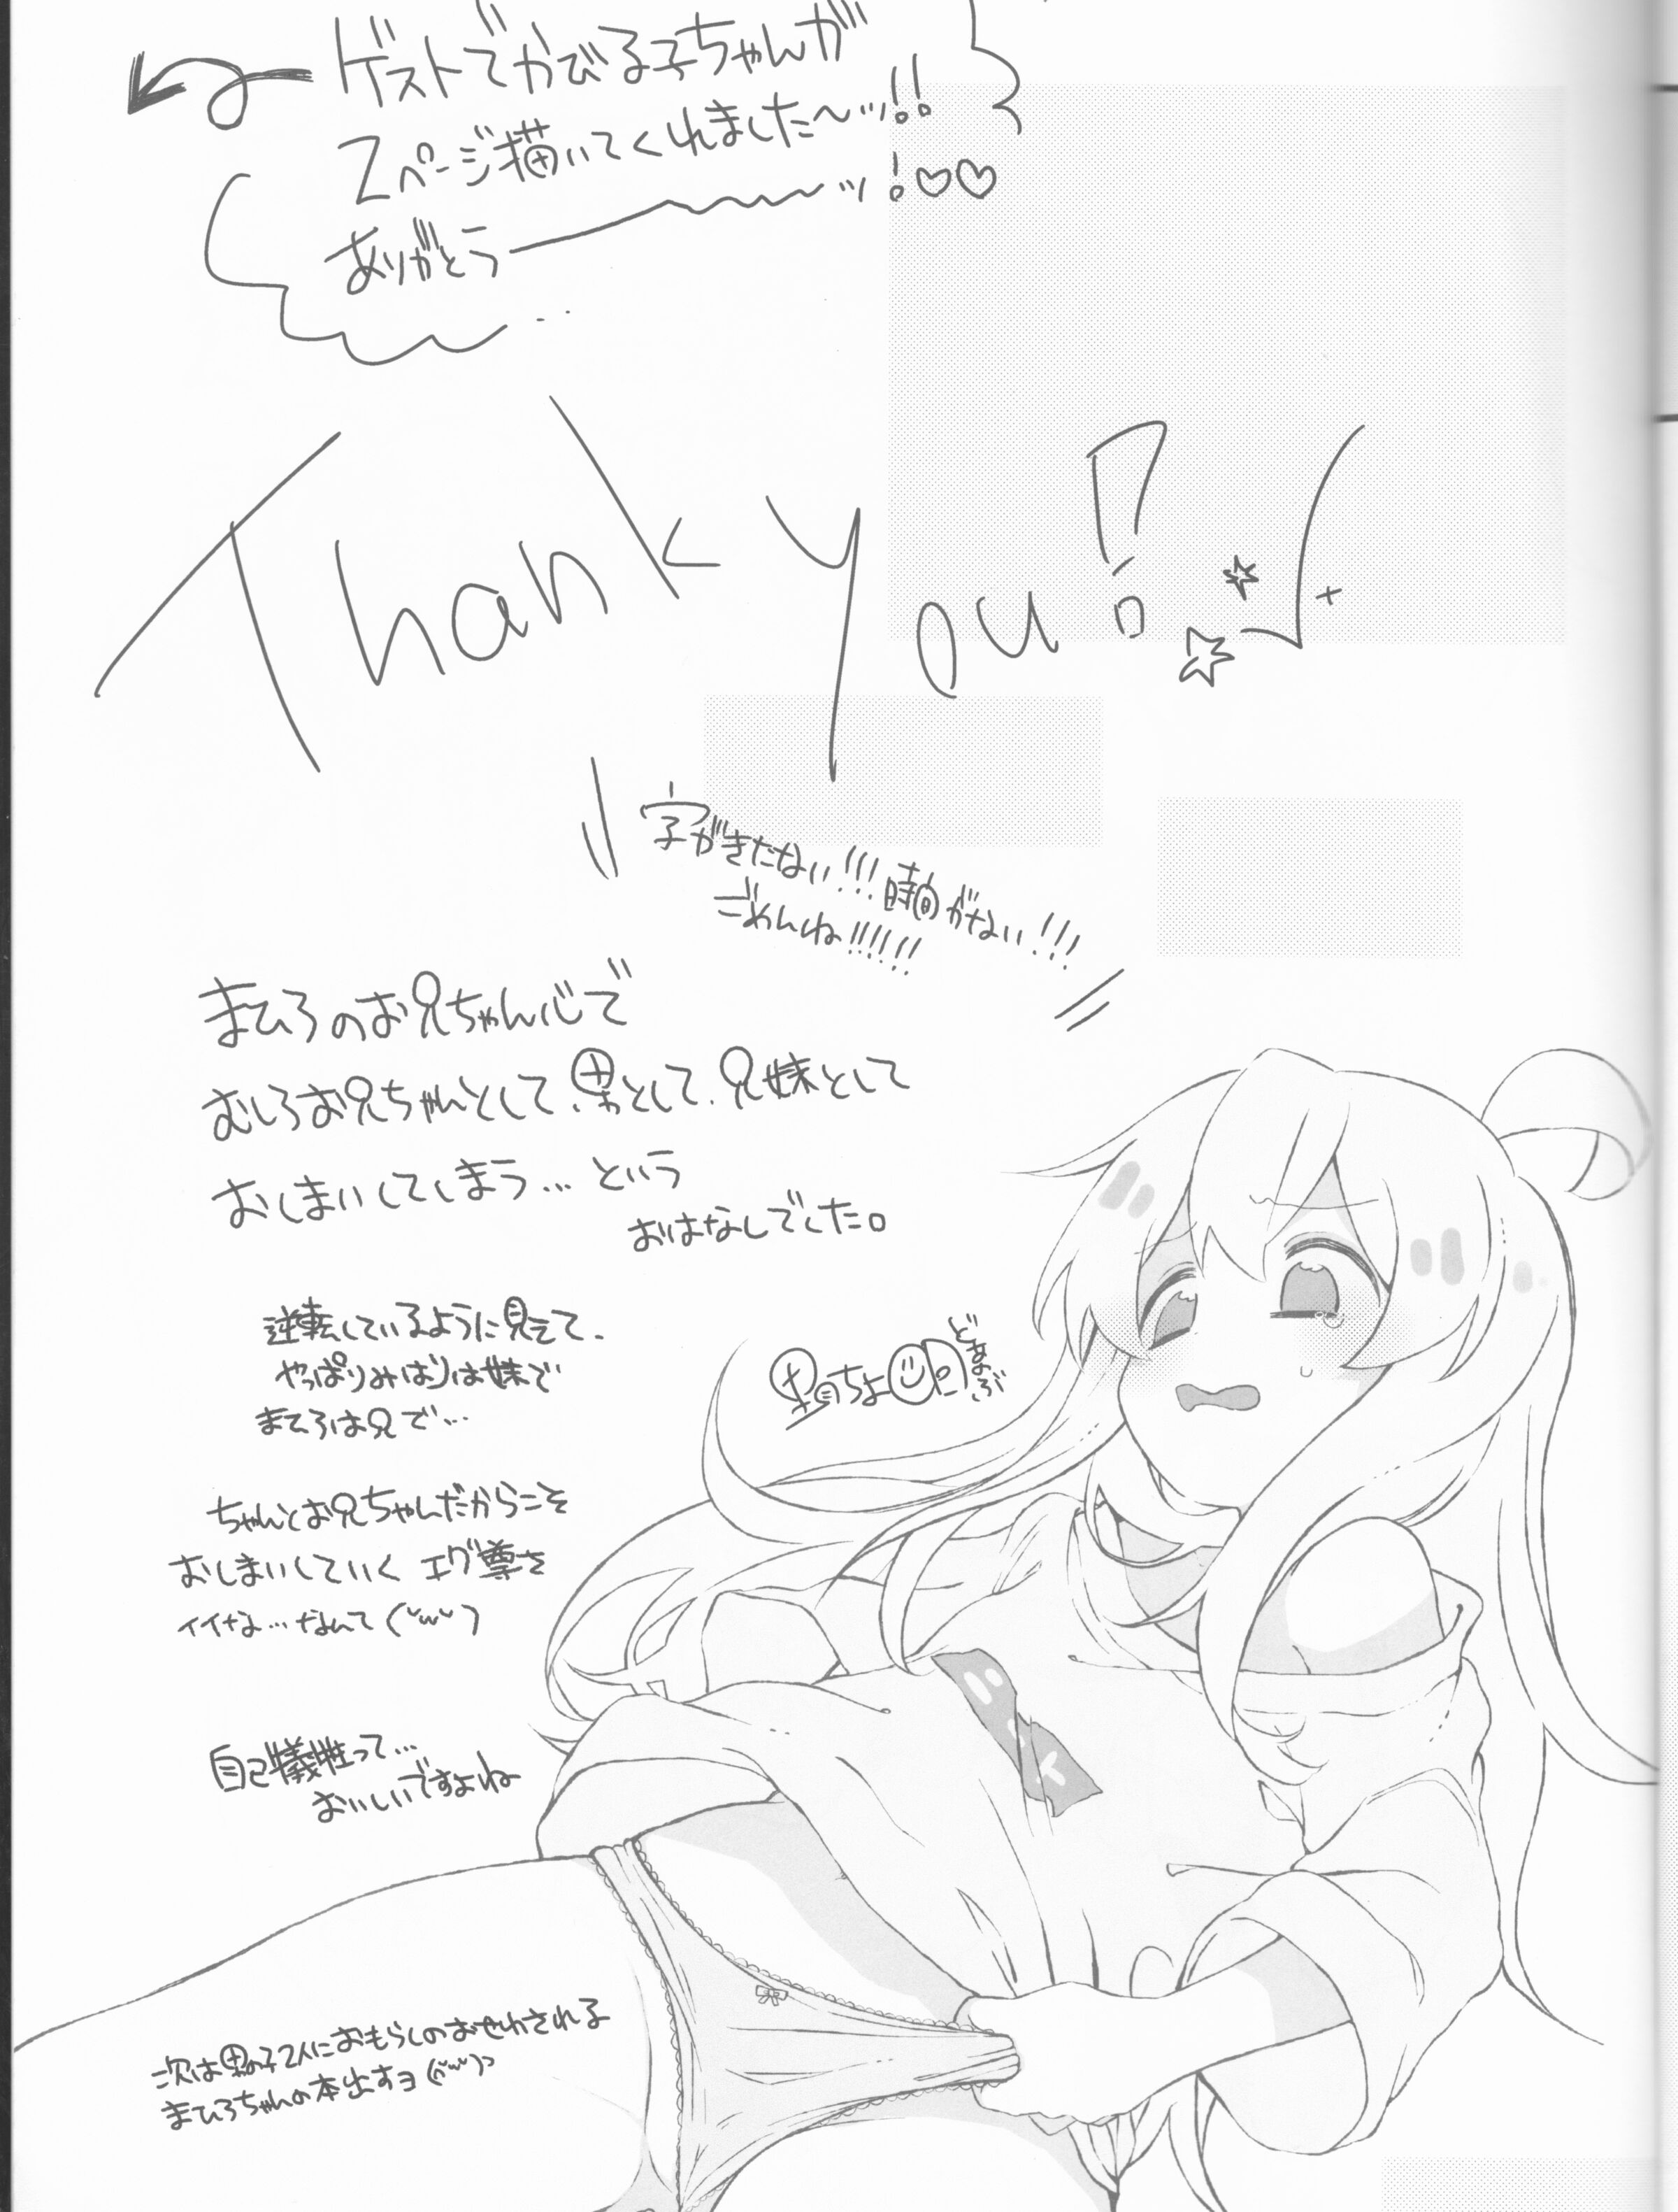 ゲストでかびる子ちゃんが
2ページ描いてくれました〜ッ!!
ありがとう――〜〜〜ッ!♡♡
Thank you!
字がきたない!!!時間がない!!!
ごめんね!!!!!!
まひろのお兄ちゃん心で
むしろお兄ちゃんとして、男として、兄妹として
おしまいしてしまう…という
おはなしでした。
逆転しているように見えて、
やっぱりみはりは妹で
まひろは兄で…
ちゃんとお兄ちゃんだからこそ
おしまいしていく エグ尊さ
イイな…なんて(˘ω˘)
自己犠牲って…
おいしいですよね
次は男の子2人におもらしのおせわされる
まひろちゃんの本出すヨ(˘ω˘)